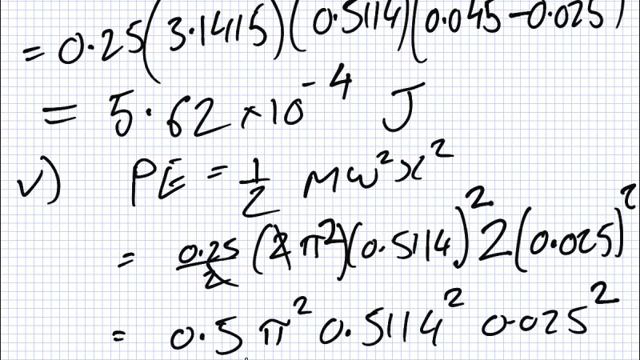 = 0.25(3.1415)(0.5114)(0.045-0.025)
= 5.62 × 10⁻⁴ J
v) PE = 1/2 mω²x²
= 0.25/2 (2π²)(0.5114)² 2(0.025)²
= 0.5 π² 0.5114² 0.025²